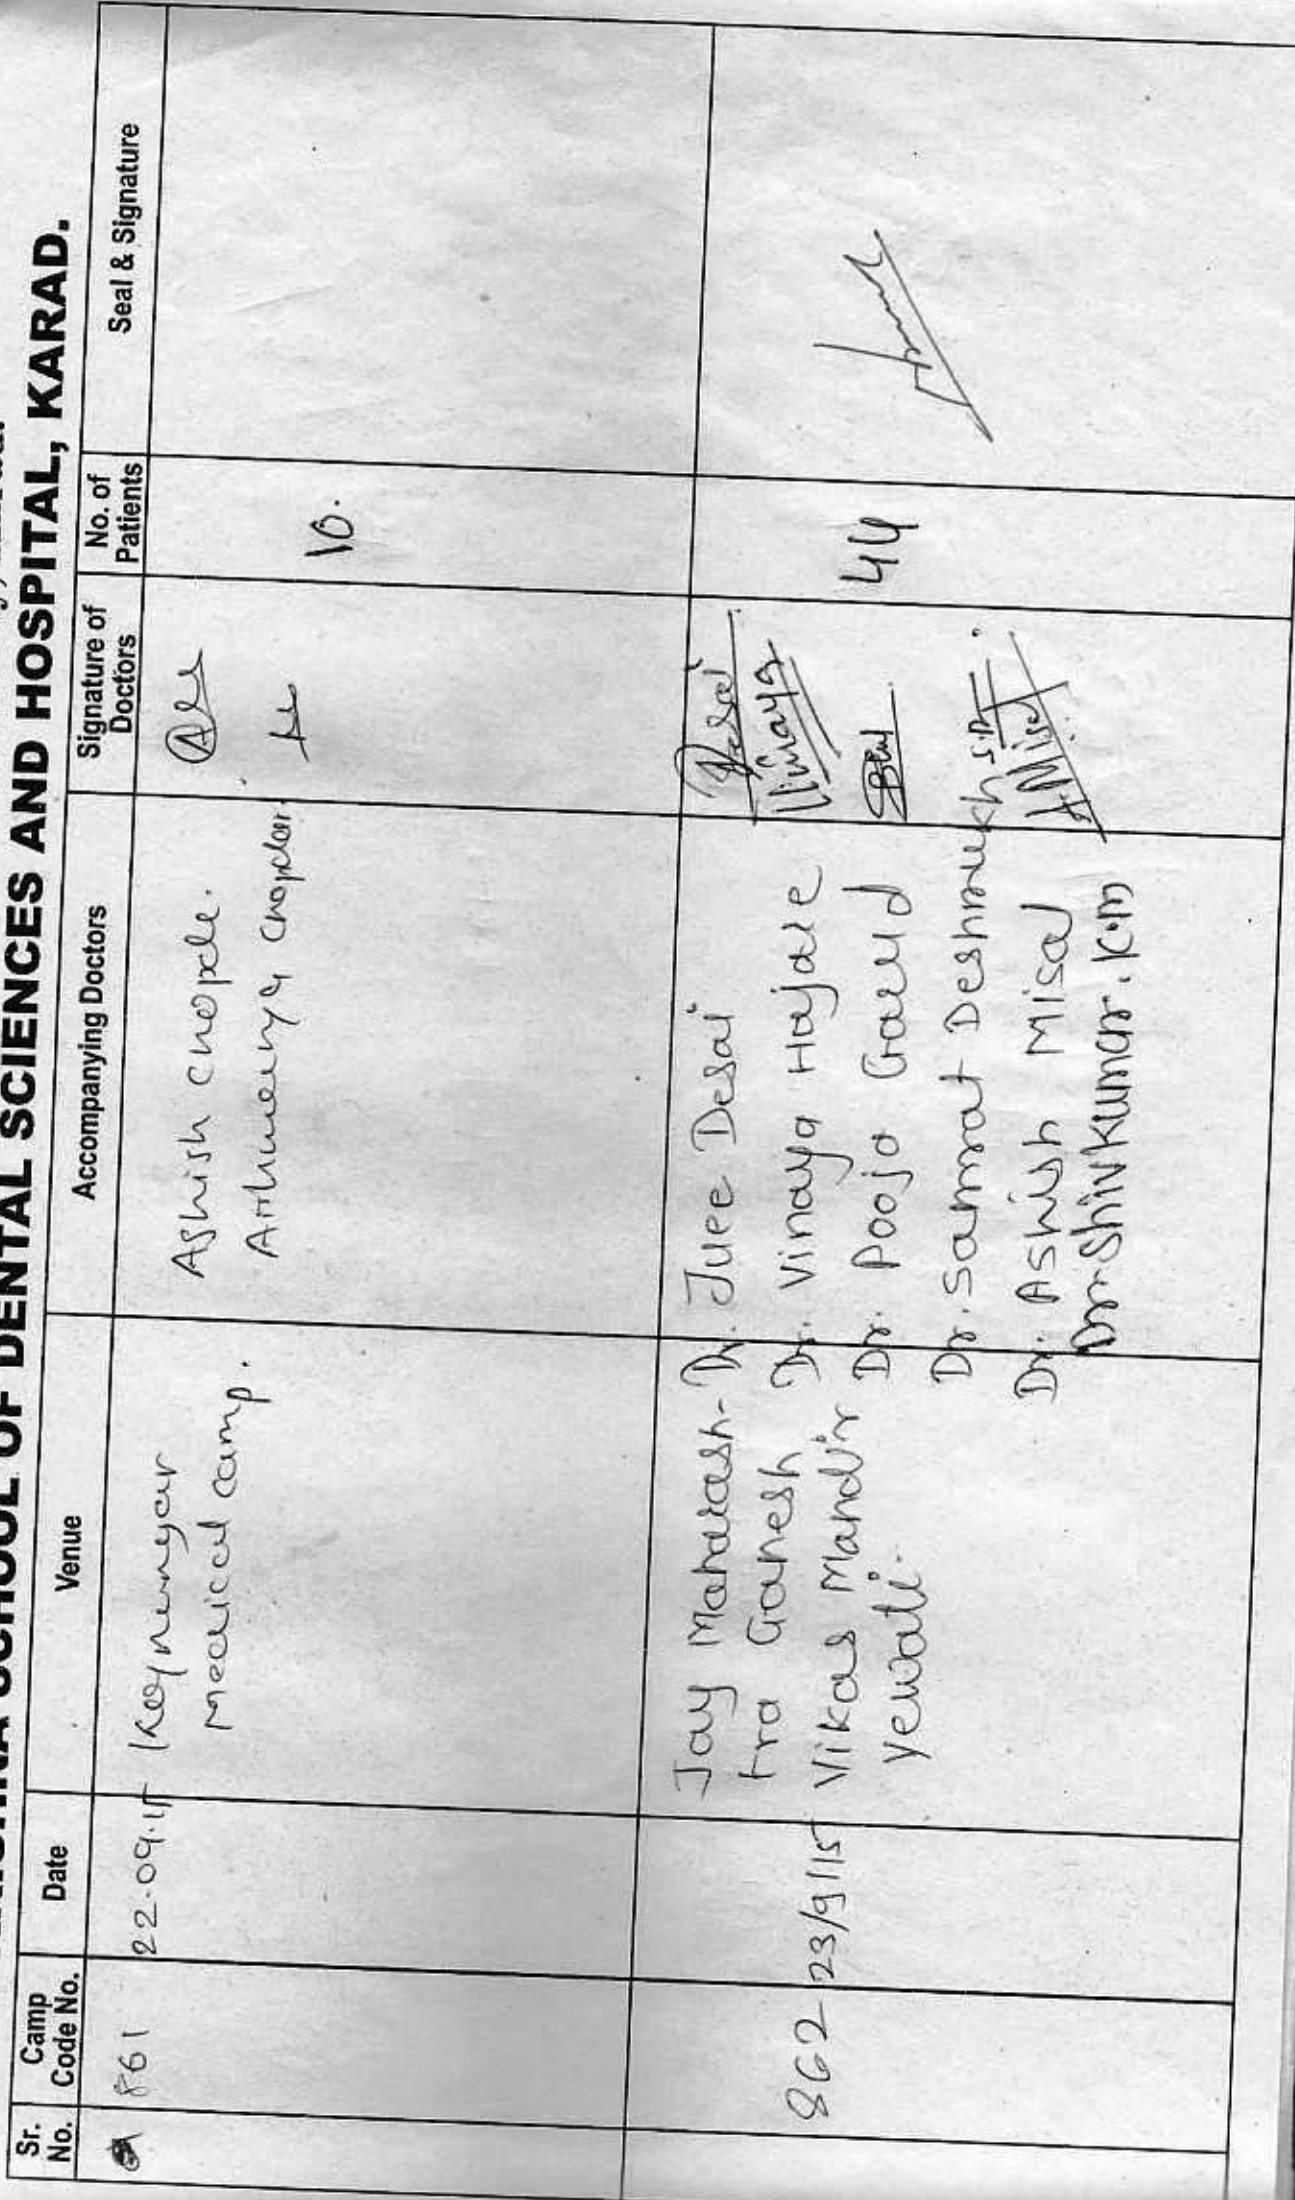 SCHOOL OF DENTAL SCIENCES AND HOSPITAL, KARAD.
Sr. No. Camp Code No. Date Venue Accompanying Doctors Signature of Doctors No. of Patients Seal & Signature
861 22.09.15
Medical camp.
Ashish
10.
Jay Maharash-
tra Ganesh
Vikas Mandir
Yewati.
862 23/9/15
Dr. Juee Desai
Dr. Vinaya Hajare
Dr. Pooja Garud
Dr. Samrat Deshmukh
Dr. Ashish Misal
Dr. Shivkumar. K.M
Desai
Vinaya
A.Misal
44